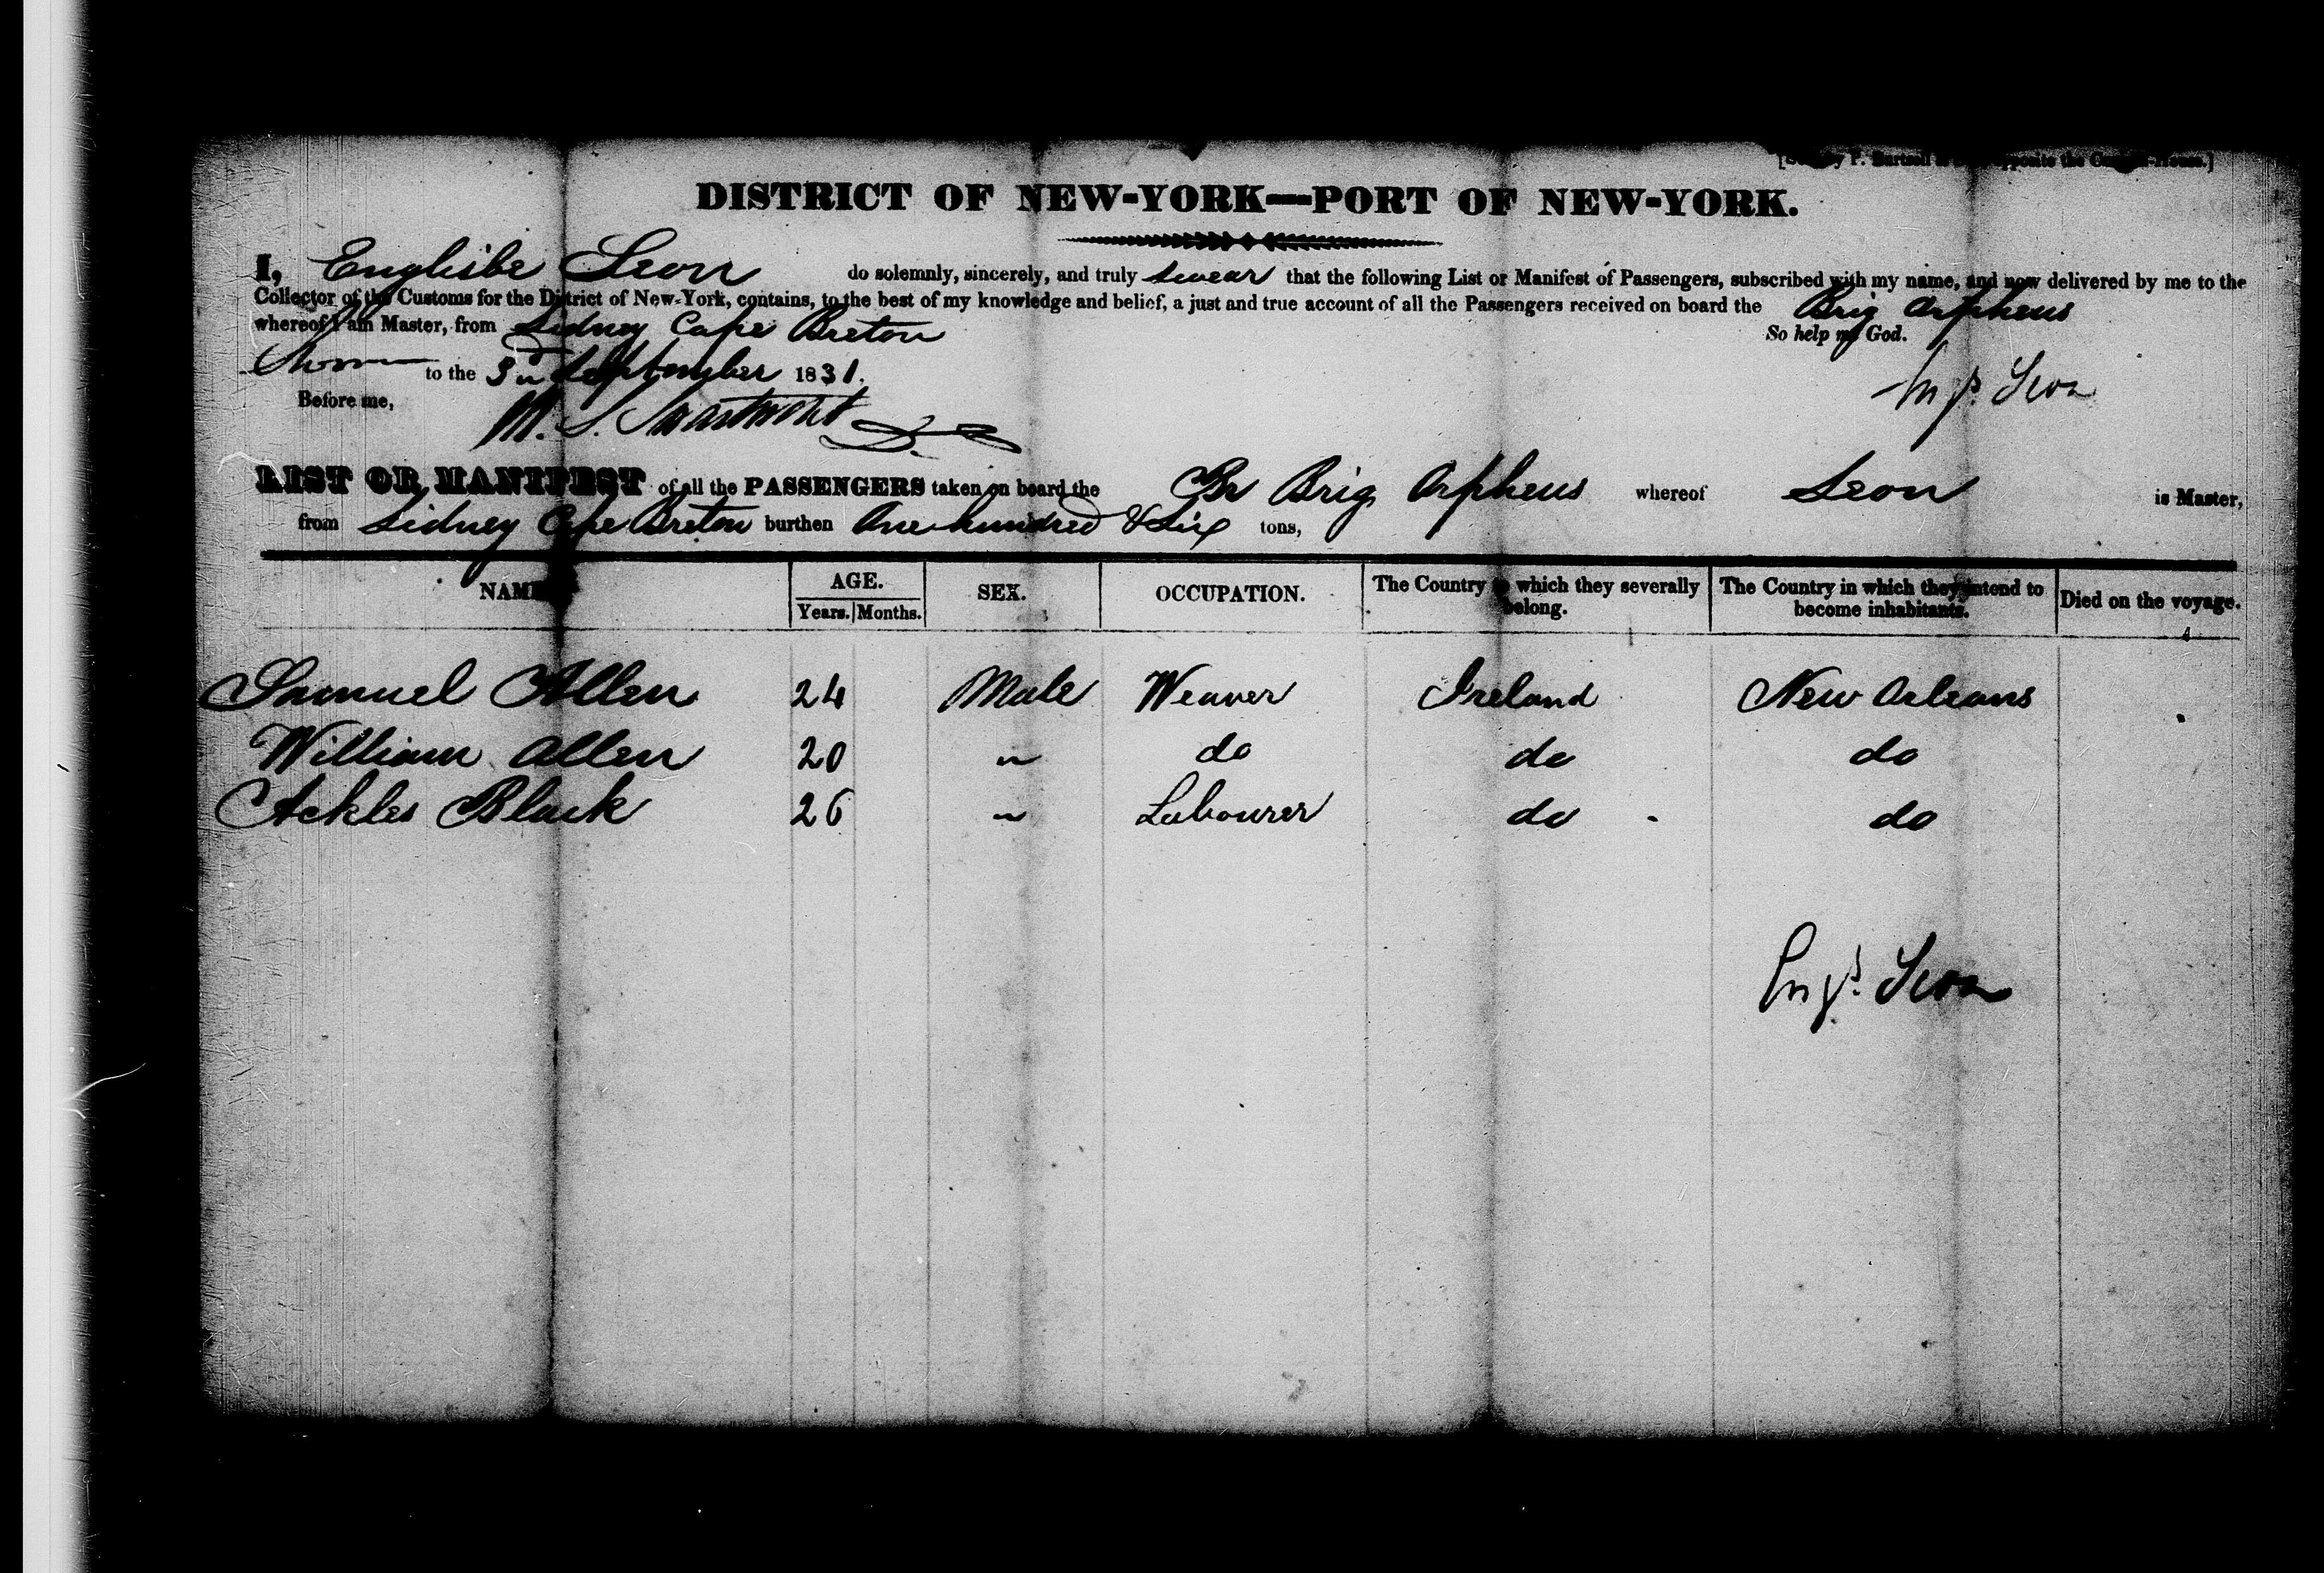 opposite the Custom-House.]
DISTRICT OF NEW-YORK—PORT OF NEW-YORK.
I, Englisbe Leon do solemnly, sincerely, and truly swear that the following List or Manifest of Passengers, subscribed with my name, and now delivered by me to the
Collector of the Customs for the District of New-York, contains, to the best of my knowledge and belief, a just and true account of all the Passengers received on board the Brig Orpheus
whereof I am Master, from Sidney Cape Breton
So help me God.
Sworn to the 3rd September 1831.
Before me,
M. S. Swartwout
LIST OR MANIFEST of all the PASSENGERS taken on board the Br Brig Orpheus whereof Leon is Master,
from Sidney Cape Breton burthen One hundred & Six tons,
NAME AGE. Years. Months. SEX. OCCUPATION. The Country to which they severally belong. The Country in which they intend to become inhabitants. Died on the voyage.
Samuel Allen 24 Male Weaver Ireland New Orleans
William Allen 20 " do do do
Ackles Black 26 " Labourer do do
Leon